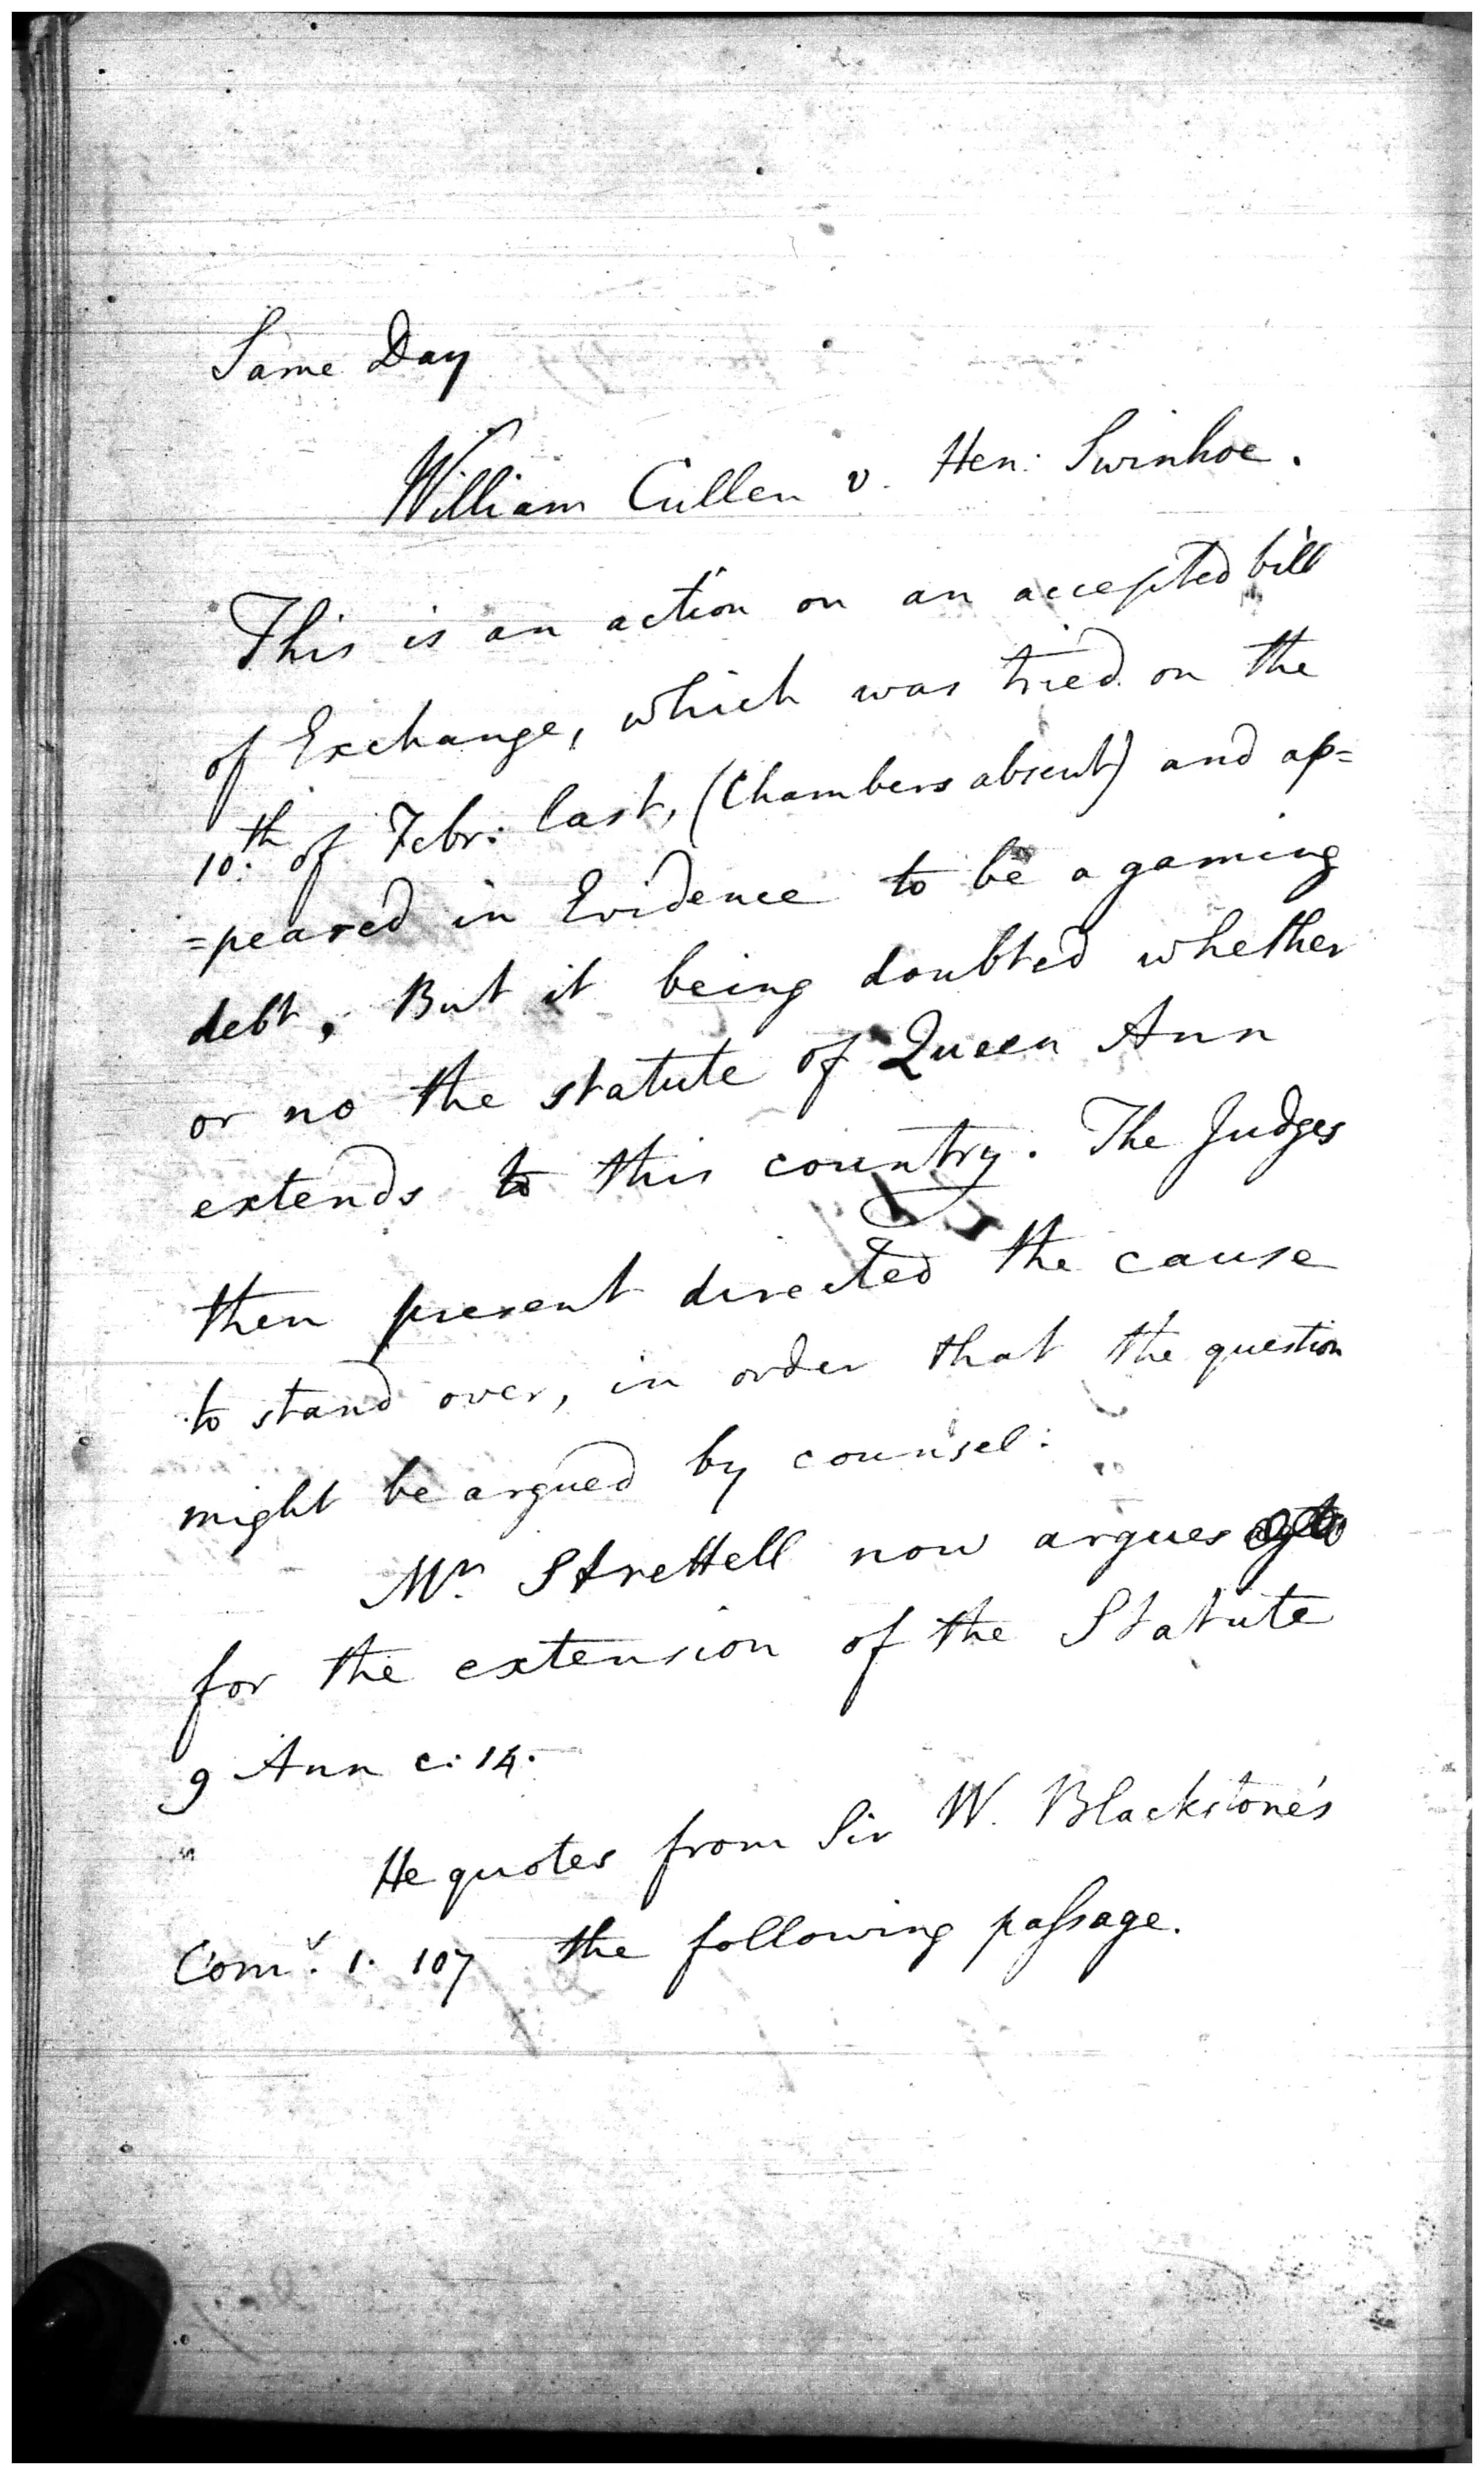 Same Day
William Cullen v. Hen: Swinhoe.
This is an action on an accepted bill
of Exchange, which was tried on the
10th. of Febr: last, (Chambers absent) and ap=
=peared in Evidence to be a gaming
debt. But it being doubted whether
or no the statute of Queen Ann
extends to this country. The Judges
then present directed the cause
to stand over, in order that the question
might be argued by counsel:
Mr. Strettell now argues
for the extension of the Statute
9 Ann c: 14.
He quotes from Sir W. Blackstone's
Com. 1. 107 the following passage.